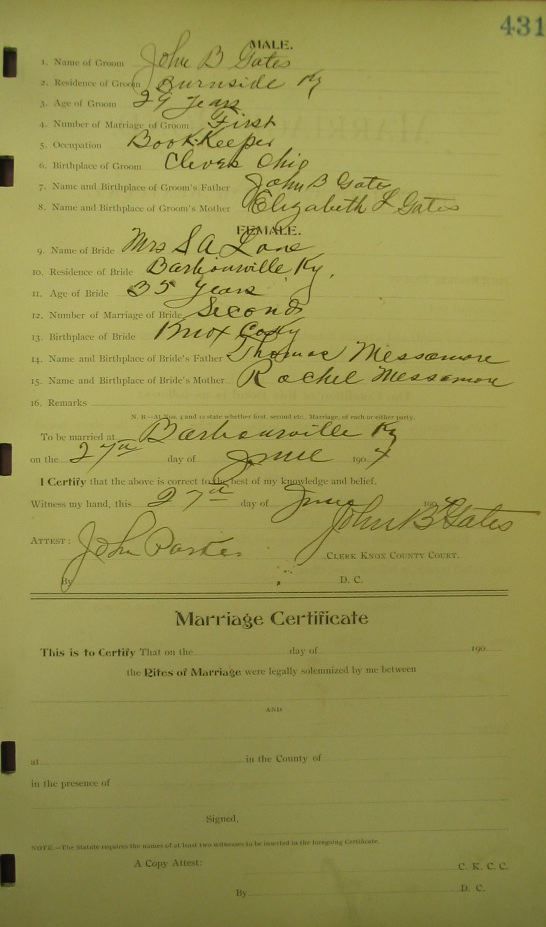 431
MALE.
1. Name of Groom John B Gates
2. Residence of Groom Burnside Ky
3. Age of Groom 29 Years
4. Number of Marriage of Groom First
5. Occupation Book-Keeper
6. Birthplace of Groom Ohio
7. Name and Birthplace of Groom's Father John B Gates
8. Name and Birthplace of Groom's Mother Elizabeth L Gates
FEMALE.
9. Name of Bride Mrs S A Lane
10. Residence of Bride Barbourville Ky.
11. Age of Bride 35 Years
12. Number of Marriage of Bride Second
13. Birthplace of Bride Knox Conty
14. Name and Birthplace of Bride's Father Thomas Messamore
15. Name and Birthplace of Bride's Mother Rachel Messamore
16. Remarks
N. B.—At Nos. 4 and 12 state whether first, second etc., Marriage, of each or either party.
To be married at Barbourville Ky
on the 27th day of June 1907
I Certify that the above is correct to the best of my knowledge and belief.
Witness my hand, this 27th day of June 190
John B Gates
ATTEST: John Parker CLERK KNOX COUNTY COURT.
By D. C.
Marriage Certificate
This is to Certify That on the day of 190
the Rites of Marriage were legally solemnized by me between
AND
at in the County of
in the presence of
Signed,
NOTE.—The Statute requires the names of at least two witnesses to be inserted in the foregoing Certificate.
A Copy Attest: C. K. C. C.
By D. C.